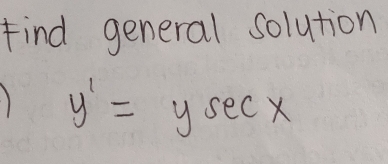 Find general solution
) y' = y sec x